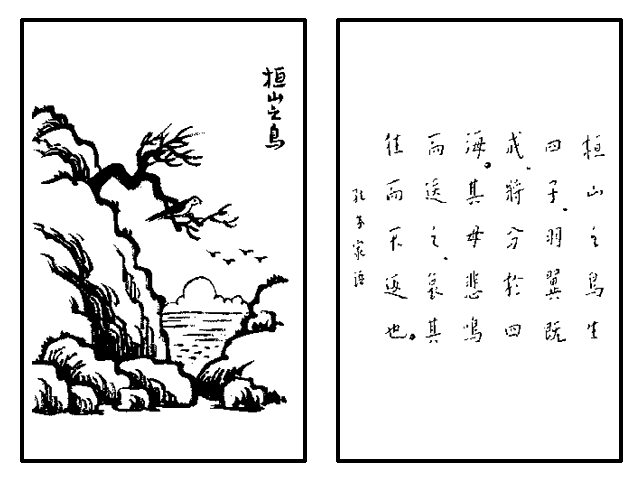 桓山之鳥
桓山之鳥生
四子、羽翼既
成、將分於四
海。其母悲鳴
而送之、哀其
往而不返也。
孔子家語